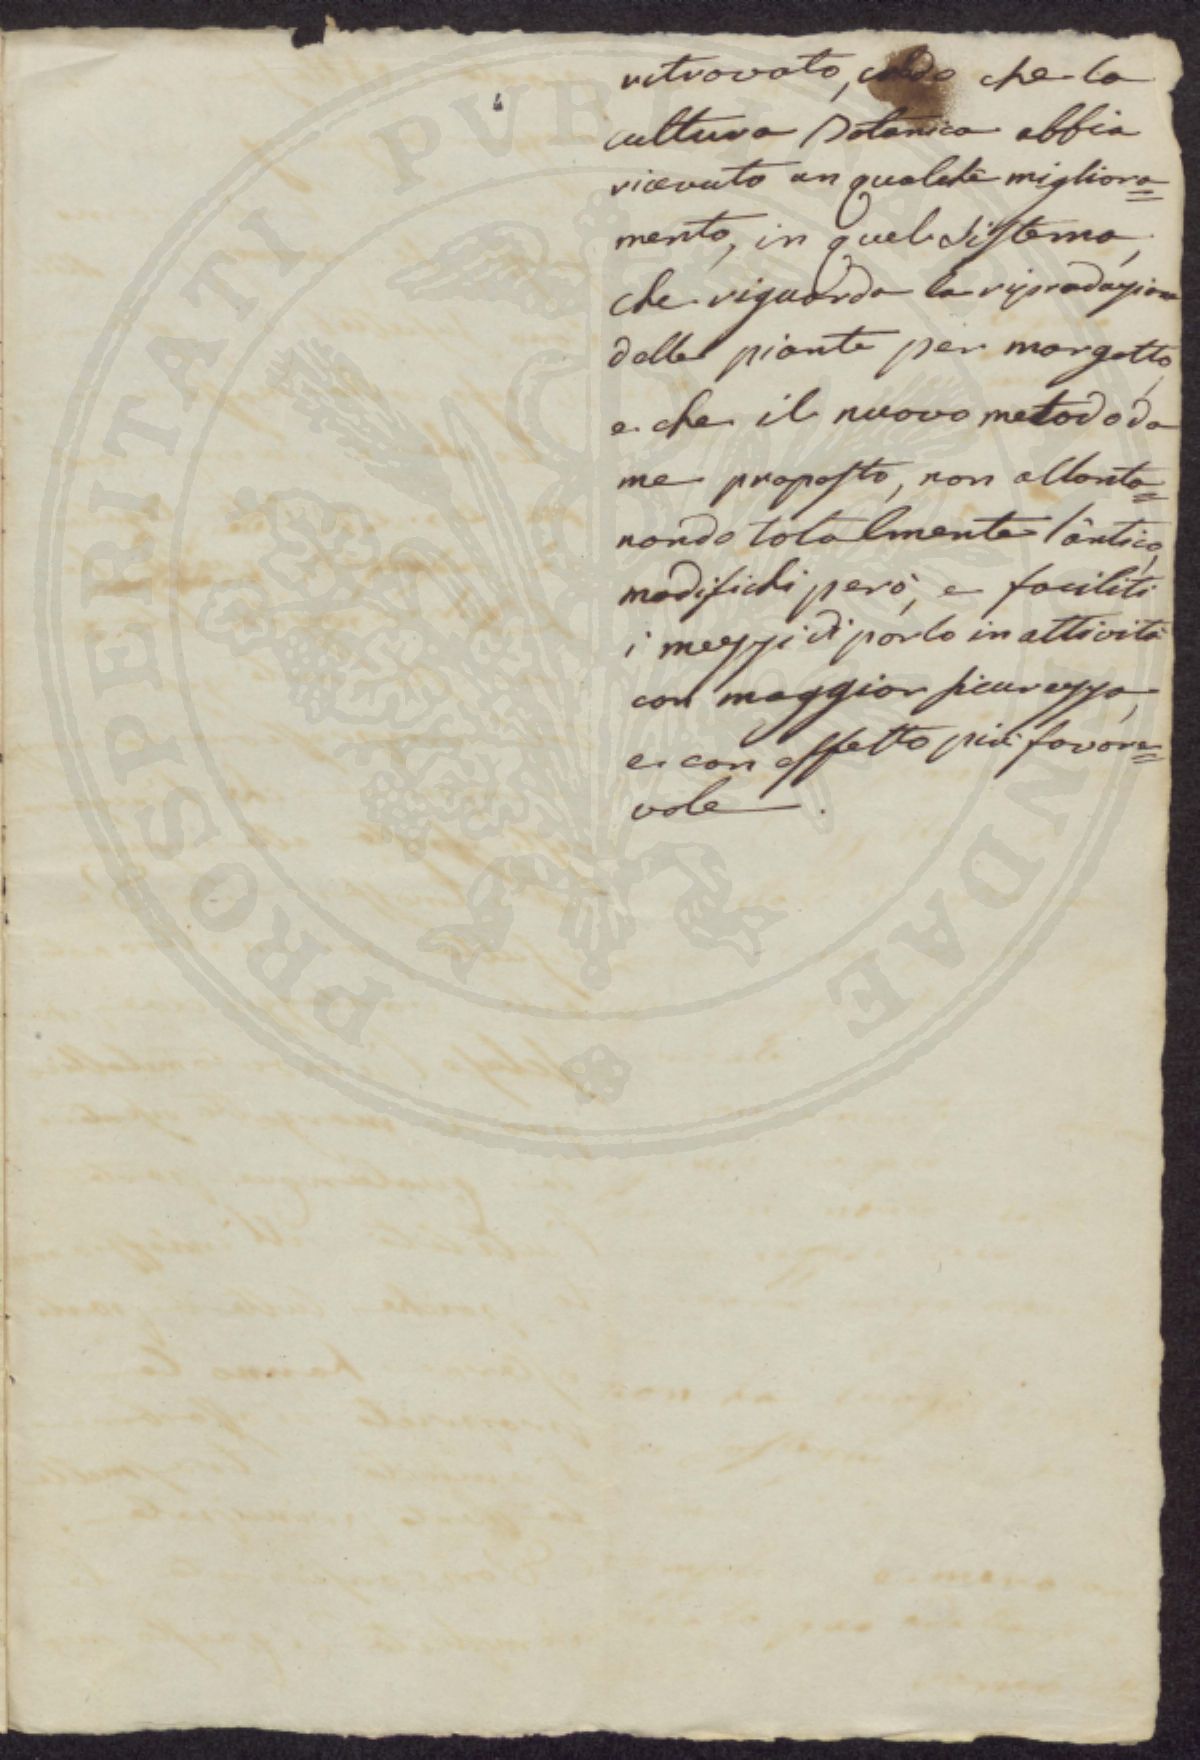 ritrovato, credo che la
cultura Botanica abbia
ricevuto un qualche migliora=
mento, in quel sistema,
che riguarda la riproduzione
delle piante per margotto,
e che il nuovo metodo da
me proposto, non allonta=
nando totalmente l'antico,
modifichi però, e faciliti
i mezzi di porlo in attività
con maggior sicurezza,
e con effetto più favore=
vole.
PROSPERITATI PVBLICAE AVGENDAE